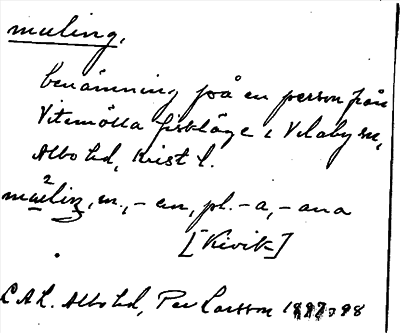 muling,
benämning på en person från
Vitemölla fiskläge i Vitaby sn,
Albo hd, Krist l.
mu²liŋ, m., -en, pl. -a, -ana
[Kivik]
L.A.L. Albo hd, Per Larsson 1897-98